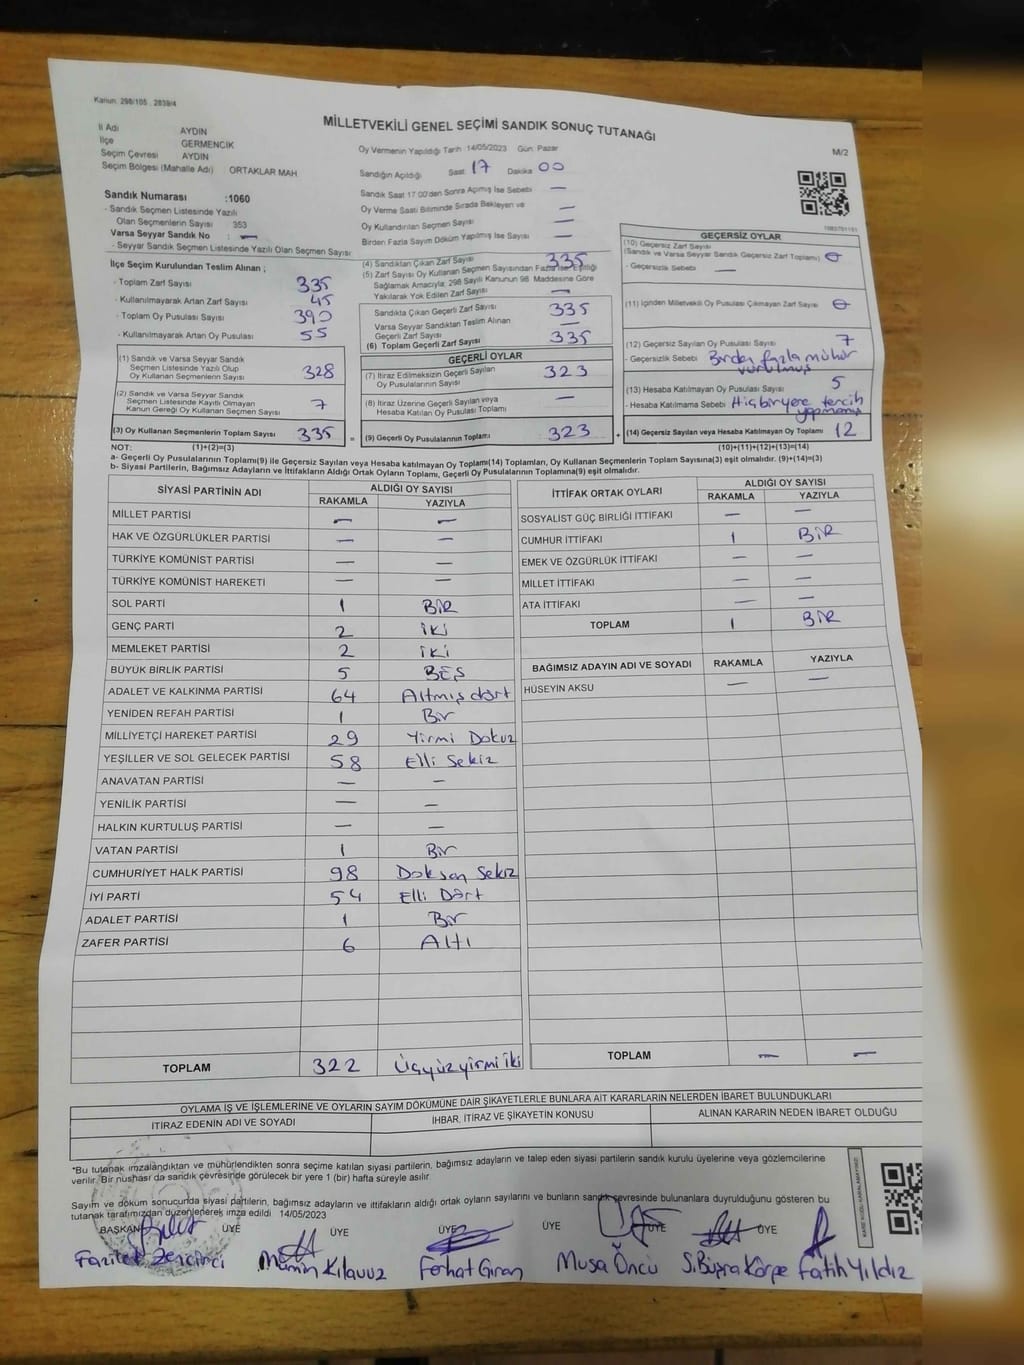 Kanun: 298/105 , 2839/4
MİLLETVEKİLİ GENEL SEÇİMİ SANDIK SONUÇ TUTANAĞI
M/2
İl Adı AYDIN
İlçe GERMENCIK
Seçim Çevresi AYDIN
Seçim Bölgesi (Mahalle Adı) ORTAKLAR MAH
Oy Vermenin Yapıldığı Tarih :14/05/2023 Gün: Pazar
Sandığın Açıldığı Saat 17 Dakika 00
Sandık Saat 17:00'den Sonra Açılmış İse Sebebi —
Oy Verme Saati Bitiminde Sırada Bekleyen ve
Oy Kullandırılan Seçmen Sayısı —
Birden Fazla Sayım Döküm Yapılmış İse Sayısı —
Sandık Numarası :1060
- Sandık Seçmen Listesinde Yazılı
Olan Seçmenlerin Sayısı 353
Varsa Seyyar Sandık No : —
- Seyyar Sandık Seçmen Listesinde Yazılı Olan Seçmen Sayısı:
İlçe Seçim Kurulundan Teslim Alınan ;
- Toplam Zarf Sayısı 335
- Kullanılmayarak Artan Zarf Sayısı 45
- Toplam Oy Pusulası Sayısı 390
- Kullanılmayarak Artan Oy Pusulası 55
(1) Sandık ve Varsa Seyyar Sandık
Seçmen Listesinde Yazılı Olup
Oy Kullanan Seçmenlerin Sayısı 328
(2) Sandık ve Varsa Seyyar Sandık
Seçmen Listesinde Kayıtlı Olmayan
Kanun Gereği Oy Kullanan Seçmen Sayısı 7
(3) Oy Kullanan Seçmenlerin Toplam Sayısı 335
(4) Sandıktan Çıkan Zarf Sayısı 335
(5) Zarf Sayısı Oy Kullanan Seçmen Sayısından Fazla İse, Eşitliği
Sağlamak Amacıyla; 298 Sayılı Kanunun 98. Maddesine Göre
Yakılarak Yok Edilen Zarf Sayısı —
Sandıkta Çıkan Geçerli Zarf Sayısı 335
Varsa Seyyar Sandıktan Teslim Alınan
Geçerli Zarf Sayısı —
(6) Toplam Geçerli Zarf Sayısı 335
GEÇERLİ OYLAR
(7) İtiraz Edilmeksizin Geçerli Sayılan
Oy Pusulalarının Sayısı 323
(8) İtiraz Üzerine Geçerli Sayılan veya
Hesaba Katılan Oy Pusulası Toplamı —
= (9) Geçerli Oy Pusulalarının Toplamı 323
GEÇERSİZ OYLAR
(10) Geçersiz Zarf Sayısı
(Sandık ve Varsa Seyyar Sandık Geçersiz Zarf Toplamı) 0
- Geçersizlik Sebebi —
(11) İçinden Milletvekili Oy Pusulası Çıkmayan Zarf Sayısı 0
(12) Geçersiz Sayılan Oy Pusulası Sayısı 7
- Geçersizlik Sebebi Birden fazla mühür
vurulmuş
(13) Hesaba Katılmayan Oy Pusulası Sayısı 5
- Hesaba Katılmama Sebebi Hiçbiryere tercih
yapmamış
+ (14) Geçersiz Sayılan veya Hesaba Katılmayan Oy Toplamı 12
NOT: (1)+(2)=(3)
(10)+(11)+(12)+(13)=(14)
a- Geçerli Oy Pusulalarının Toplamı(9) ile Geçersiz Sayılan veya Hesaba katılmayan Oy Toplamı(14) Toplamları, Oy Kullanan Seçmenlerin Toplam Sayısına(3) eşit olmalıdır. (9)+(14)=(3)
b- Siyasi Partilerin, Bağımsız Adayların ve İttifakların Aldığı Ortak Oyların Toplamı, Geçerli Oy Pusulalarının Toplamına(9) eşit olmalıdır.
SİYASİ PARTİNİN ADI ALDIĞI OY SAYISI
RAKAMLA YAZIYLA
MİLLET PARTİSİ — —
HAK VE ÖZGÜRLÜKLER PARTİSİ — —
TÜRKİYE KOMÜNİST PARTİSİ — —
TÜRKİYE KOMÜNİST HAREKETİ — —
SOL PARTİ 1 BİR
GENÇ PARTİ 2 İKİ
MEMLEKET PARTİSİ 2 İKİ
BÜYÜK BİRLİK PARTİSİ 5 BEŞ
ADALET VE KALKINMA PARTİSİ 64 Altmış dört
YENİDEN REFAH PARTİSİ 1 Bir
MİLLİYETÇİ HAREKET PARTİSİ 29 Yirmi Dokuz
YEŞİLLER VE SOL GELECEK PARTİSİ 58 Elli Sekiz
ANAVATAN PARTİSİ — —
YENİLİK PARTİSİ — —
HALKIN KURTULUŞ PARTİSİ — —
VATAN PARTİSİ 1 Bir
CUMHURİYET HALK PARTİSİ 98 Doksan Sekiz
İYİ PARTİ 54 Elli Dört
ADALET PARTİSİ 1 Bir
ZAFER PARTİSİ 6 Altı
TOPLAM 322 Üçyüzyirmi iki
İTTİFAK ORTAK OYLARI ALDIĞI OY SAYISI
RAKAMLA YAZIYLA
SOSYALİST GÜÇ BİRLİĞİ İTTİFAKI — —
CUMHUR İTTİFAKI 1 BİR
EMEK VE ÖZGÜRLÜK İTTİFAKI — —
MİLLET İTTİFAKI — —
ATA İTTİFAKI — —
TOPLAM 1 BİR
BAĞIMSIZ ADAYIN ADI VE SOYADI RAKAMLA YAZIYLA
HÜSEYİN AKSU — —
TOPLAM — —
OYLAMA İŞ VE İŞLEMLERİNE VE OYLARIN SAYIM DÖKÜMÜNE DAİR ŞİKAYETLERLE BUNLARA AİT KARARLARIN NELERDEN İBARET BULUNDUKLARI
İTİRAZ EDENİN ADI VE SOYADI İHBAR, İTİRAZ VE ŞİKAYETİN KONUSU ALINAN KARARIN NEDEN İBARET OLDUĞU
*Bu tutanak imzalandıktan ve mühürlendikten sonra seçime katılan siyasi partilerin, bağımsız adayların ve talep eden siyasi partilerin sandık kurulu üyelerine veya gözlemcilerine
verilir. Bir nüshası da sandık çevresinde görülecek bir yere 1 (bir) hafta süreyle asılır.
Sayım ve döküm sonucunda siyasi partilerin, bağımsız adayların ve ittifakların aldığı ortak oyların sayılarını ve bunların sandık çevresinde bulunanlara duyrulduğunu gösteren bu
tutanak tarafımızdan düzenlenerek imza edildi 14/05/2023
BAŞKAN ÜYE ÜYE ÜYE ÜYE ÜYE ÜYE
Mümin Kılavuz Ferhat Giran Musa Öncü S.Büşra Körpe Fatih Yıldız